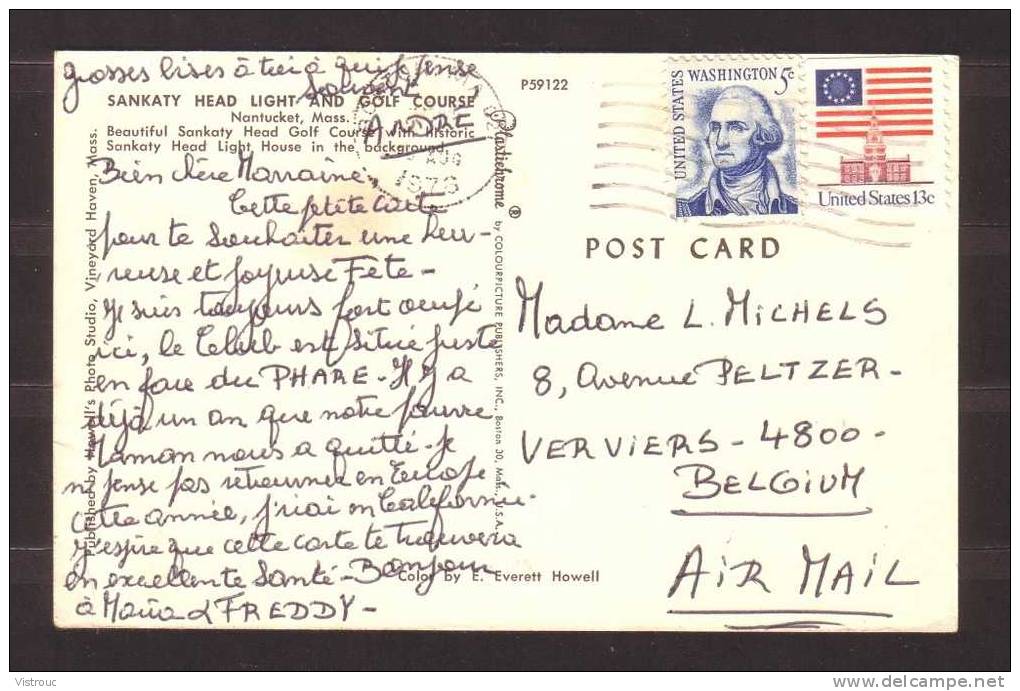 grosses bises à toi à qui je pense
souvent
ANDRE
SANKATY HEAD LIGHT AND GOLF COURSE
Nantucket, Mass.
Beautiful Sankaty Head Golf Course with historic
Sankaty Head Light House in the background.
Bien Chère Marraine,
Cette petite carte
pour te souhaiter une heu-
reuse et joyeuse Fête -
Je suis toujours fort occupé
ici, le Club est situé juste
en face du PHARE - Il y a
déjà un an que notre pauvre
Maman nous a quitté - Je
ne pense pas retourner en Europe
cette année, j'irai en Californie -
J'espère que cette carte te trouvera
en excellente santé - Bonjour
à Maria & FREDDY -
Published by Howell's Photo Studio, Vineyard Haven, Mass.
Color by E. Everett Howell
P59122
Plastichrome ® by COLOURPICTURE PUBLISHERS, INC., Boston 30, Mass., U.S.A.
AUG
1976
UNITED STATES
WASHINGTON 5c
United States 13c
POST CARD
Madame L. MICHELS
8, Avenue PELTZER -
VERVIERS - 4800 -
BELGIUM
AIR MAIL
Vistrouc
delcampe.net